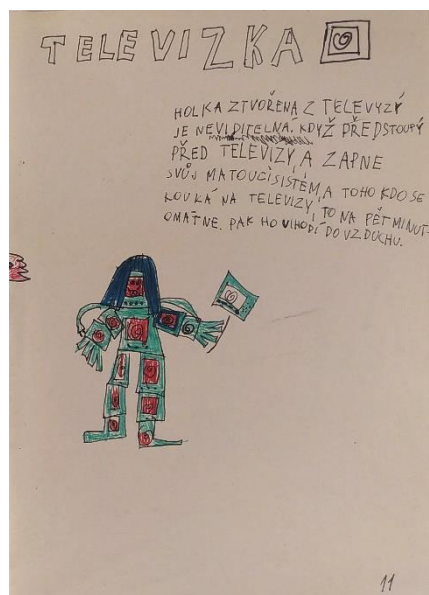 TELEVIZKA
HOLKA ZTVOŘENÁ Z TELEVYZÝ
JE NEVIDITELNÁ. KDYŽ PŘEDSTOUPÝ
PŘED TELEVIZY, A ZAPNE
SVŮJ MATOUCÍSISTÉM A TOHO KDO SE
KOUKÁ NA TELEVIZY, TO NA PĚT MINUT
OMATNE. PAK HO VIHODÍ DO VZDUCHU.
11